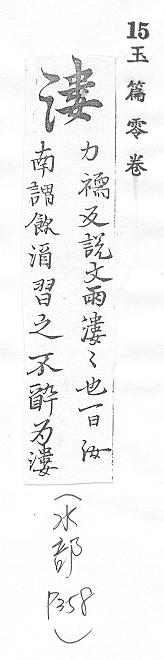 15玉篇零卷
漊
力禱反說文雨漊〻也一曰汝
南謂飲酒習之不醉为漊
（水部
P358）